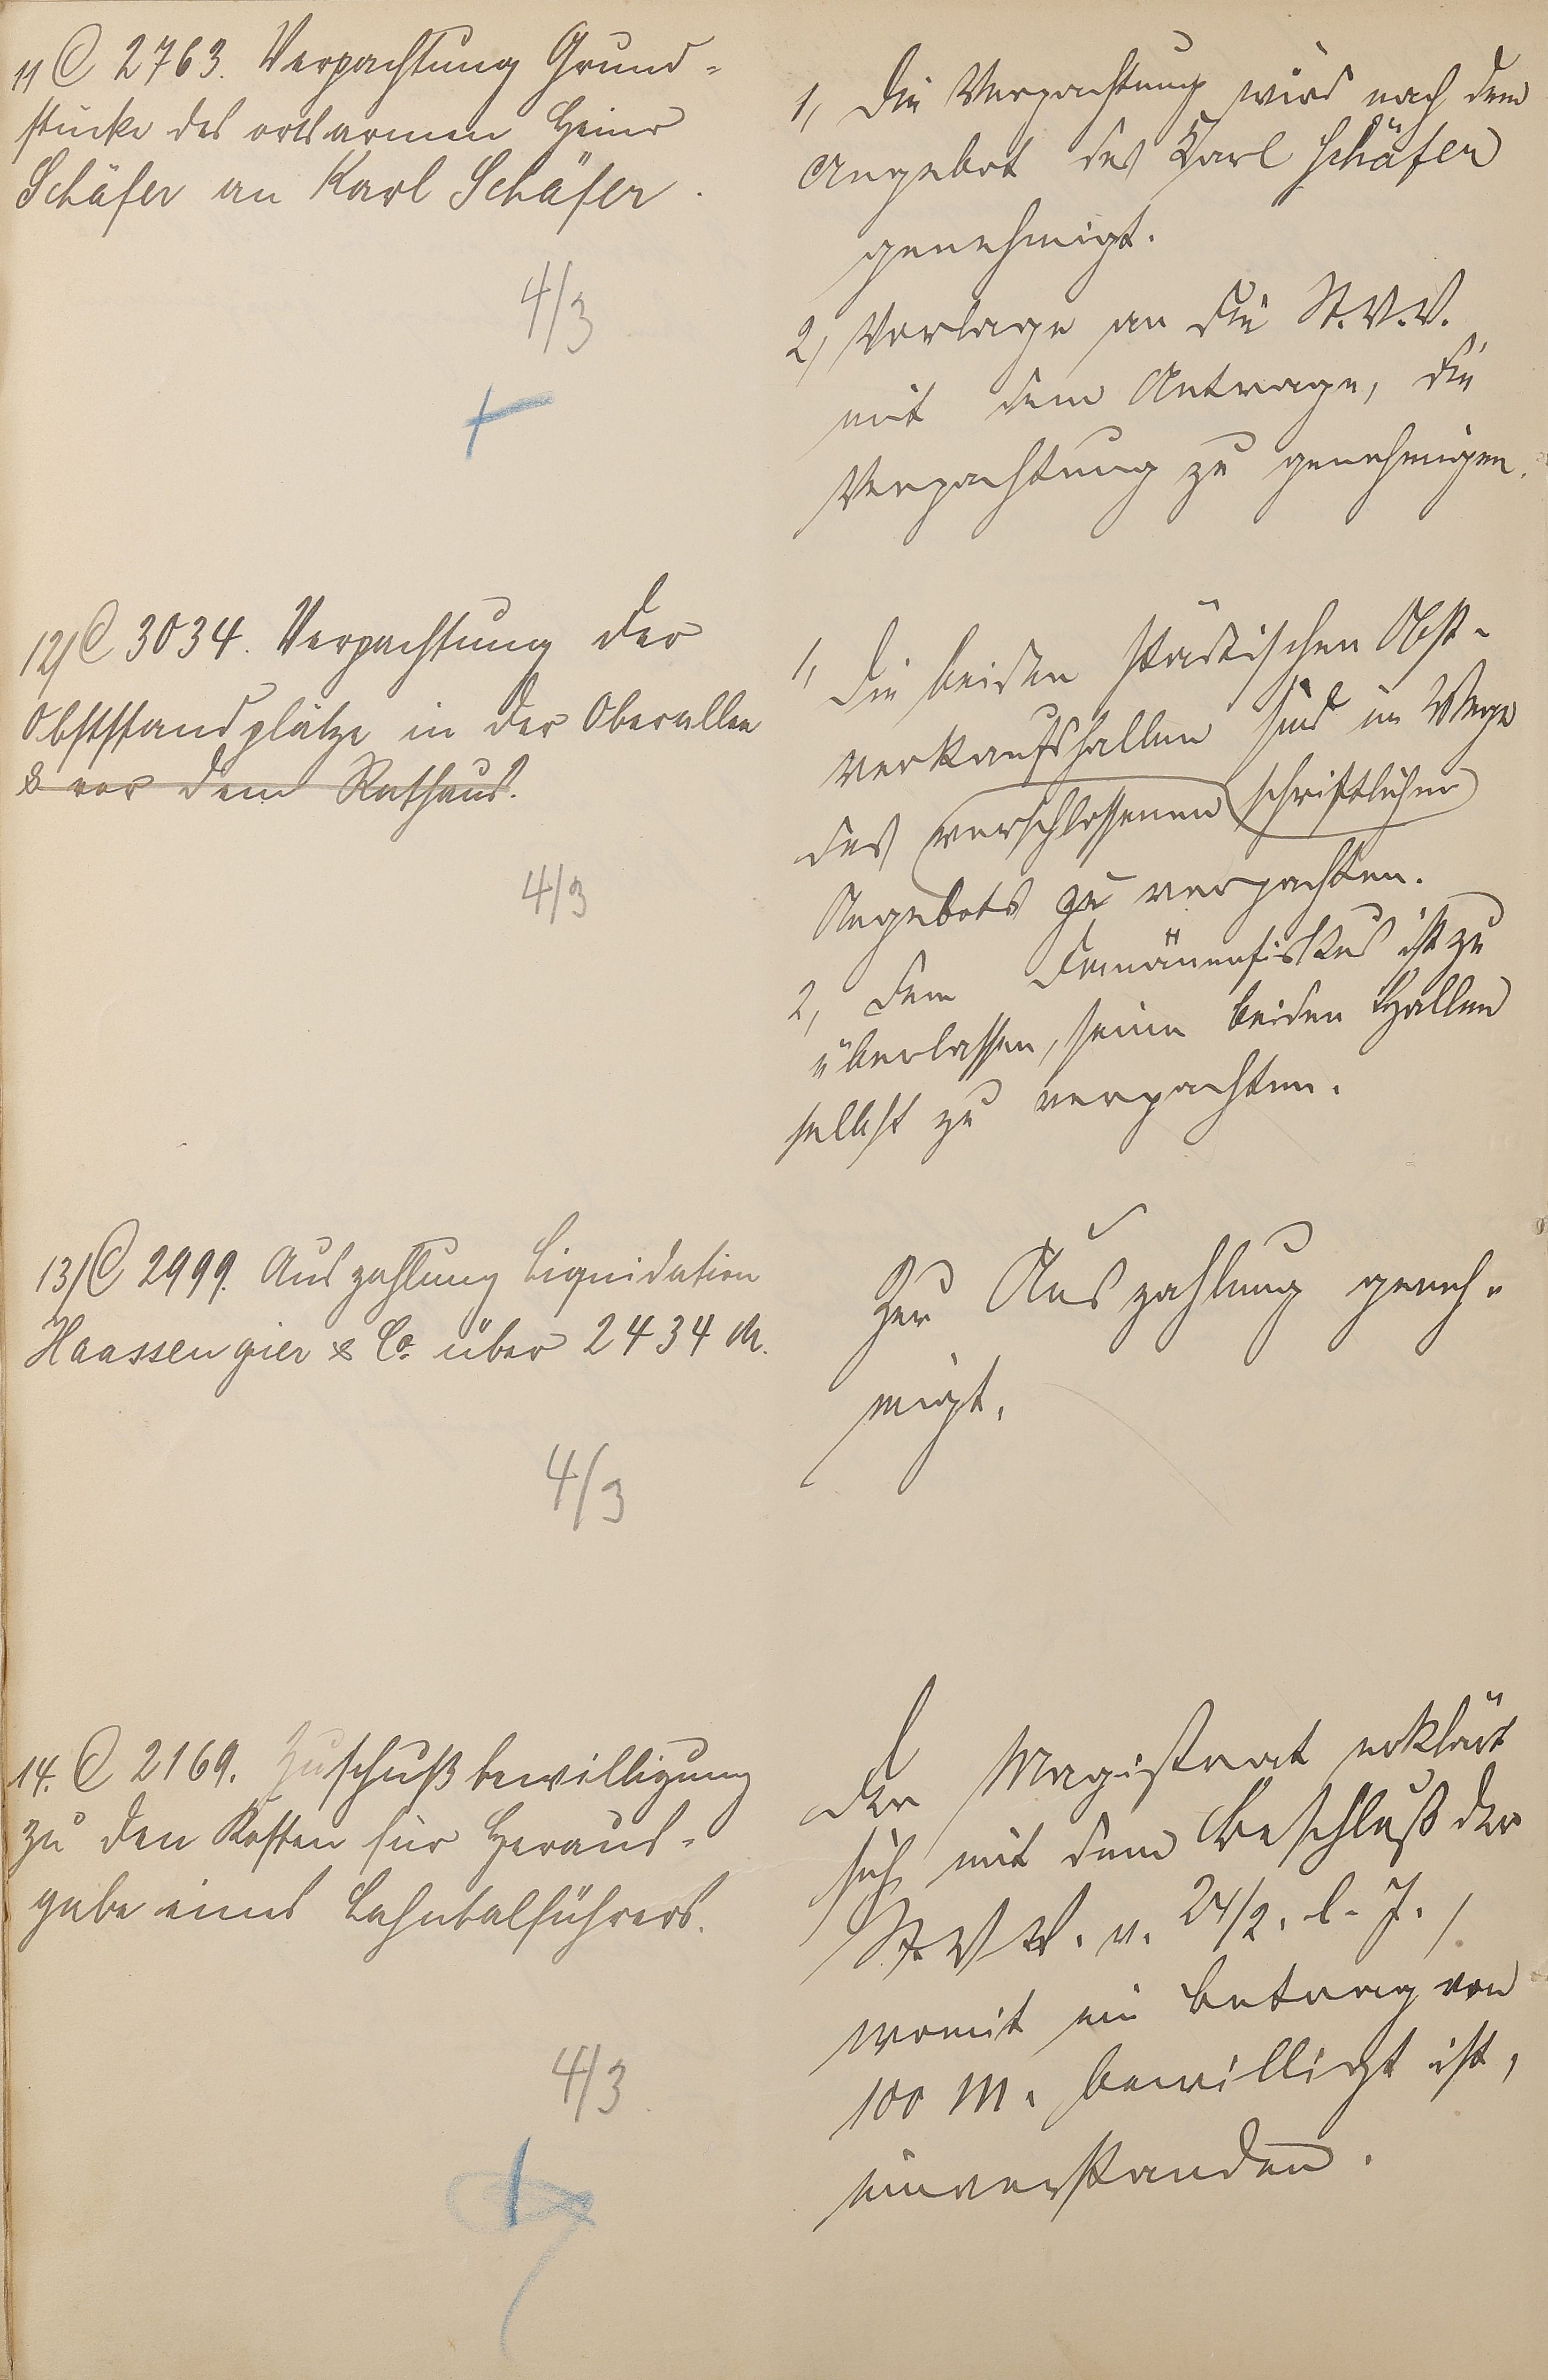 11) C 2763. Verpachtung Grund-
stücke des ortsarmen Heinr
Schäfer an Karl Schäfer.
4/3
1, Die Verpachtung wird nach dem
Angebot des Karl Schäfer
genehmigt.
2, Vorlage an die St.V.V.
mit dem Antrage, die
Verpachtung zu genehmigen.
12) C 3034. Verpachtung der
Obststandplätze in der Oberallee
& vor dem Rathaus.
4/3
1, Die beiden städtischen Obst-
verkaufshallen sind im Wege
des verschlossenen schriftlichen
Angebots zu verpachten.
2, Dem Domänenfiskus ist zu
überlassen, seine beiden Hallen
selbst zu verpachten.
13) C 2999. Auszahlung Liquidation
Haassengier & Co. über 2434 M.
4/3
Zur Auszahlung geneh-
migt.
14. C 2169. Zuschußbewilligung
zu den Kosten für Heraus-
gabe eines Lahntalführers.
4/3
Der Magistrat erklärt
sich mit dem Beschluß der
St.V.V. v. 24/2. l. J.,
womit ein Betrag von
100 M. bewilligt ist,
einverstanden.